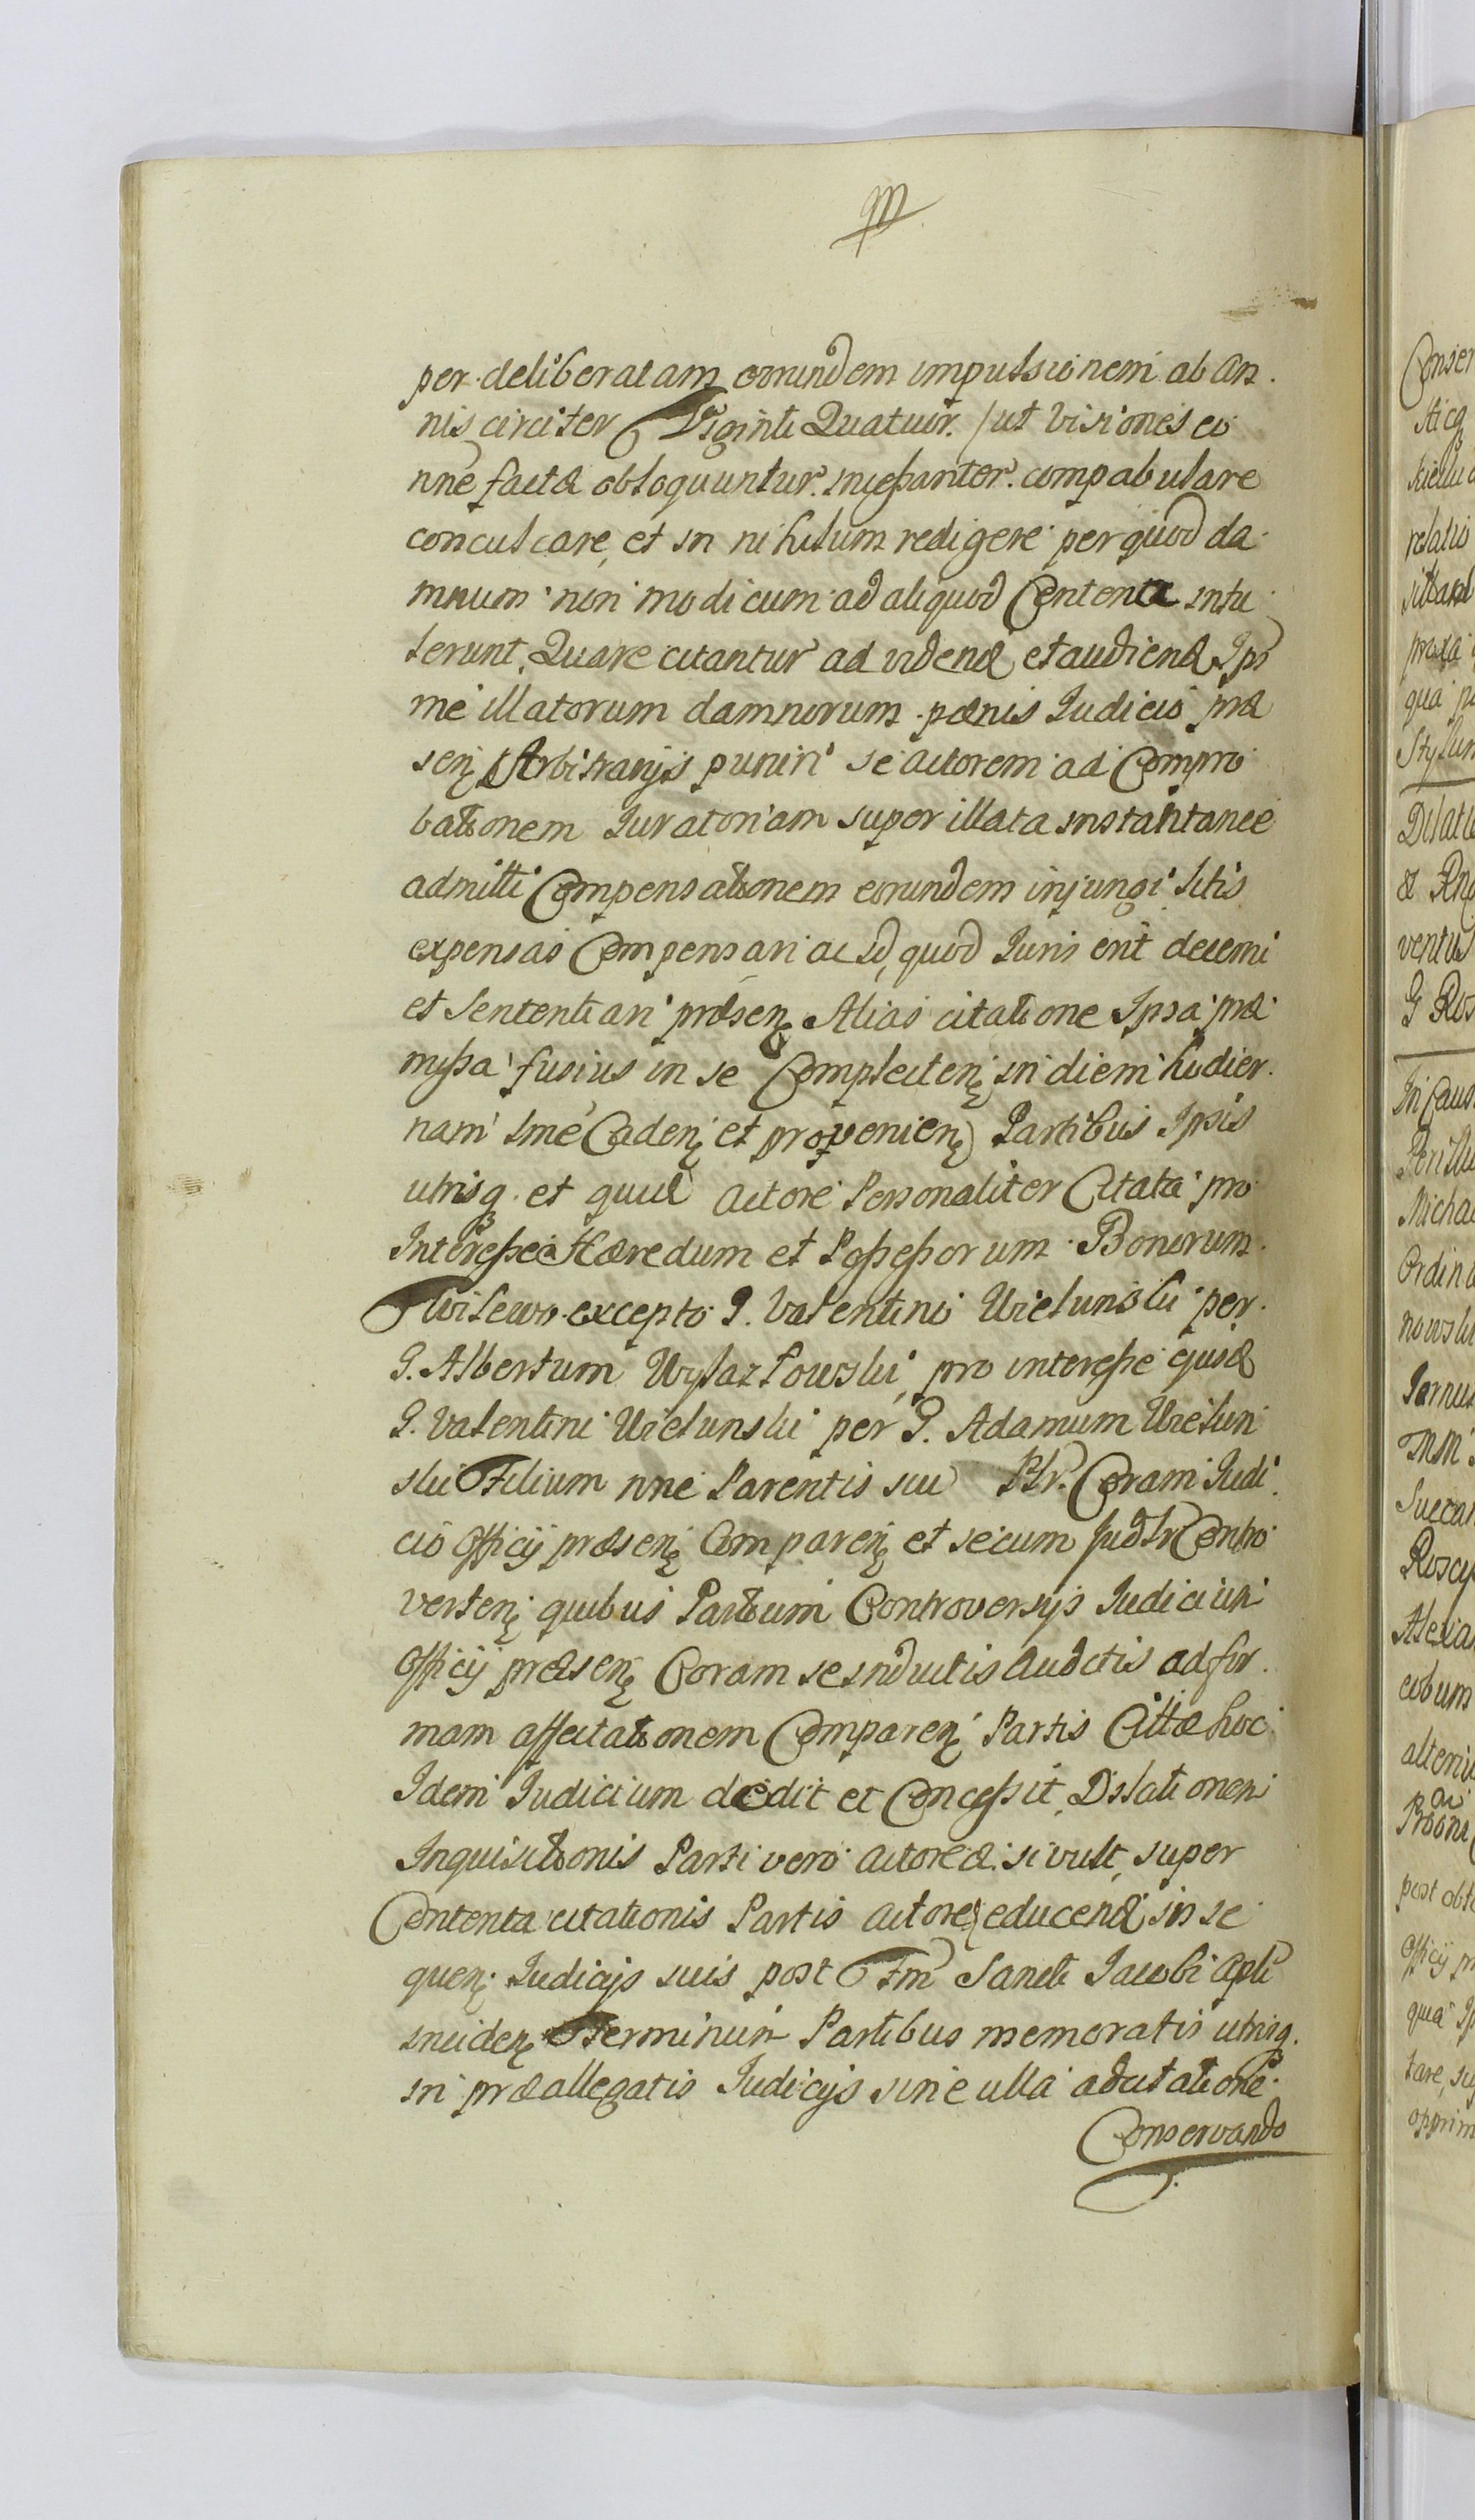 per deliberatam eorundem impulsionem ab an
nis circiter Viginti Quatuor. /ut Visiones eo
nne factæ obloquuntur. incessanter. compabulare
conculcare, et in nihilum redigere per quod da
mnum non modicum ad aliquod Centena intu
lerunt. Quare citantur ad vidend et audiend Ips
me illatorum damnorum pænis Judicio præ
sen Arbitrarijs puniri se actorem ad Compro
bationem Juratoriam super illata instantanee
admitti Compensationem eorundem injungi litis
expensas Compensari ac id, quod Juris erit decerni
et Sententiari præsen Alias citatione Ipsa præ
missa fusius in se Complecten in diem hodier
nam Caden et provenien Partibus Ipsis
utrisq et quid Actore Personaliter Citata pro
Interesse Hæredum et Possessorum Bonorum
Wilewo excepto G. Valentino Wielunski per
G. Albertum Wylazlowski, pro interesse ejusd
G. Valentini Wielunski per G. Adamum Wielun
ski Filium nne Parentis sui Coram Judi
cio Officij præsen Comparen et secum Contro
verten quibus Partium Controversijs Judicium
Officij præsen Coram se inductis auditis ad for
mam affectationem Comparen Partis Cittæ hoc
Idem Judicium dedit et Concessit, Dilationem
Inquisitionis Parti vero actoreæ si vult, super
Contenta citationis Partis actoreæ educend in se
quen Judicijs suis post Fm Sancti Jacobi Apli
inciden Terminum Partibus memoratis utrisq
in præallegatis Judicijs sine ulla adcitatione
Conservando
Conser
relatio
Stylum
Dilatio
ventus
In Caus
Perillu
Micha
Ordina
nowski
Succa
Roscy
Alexa
post obt
Officij